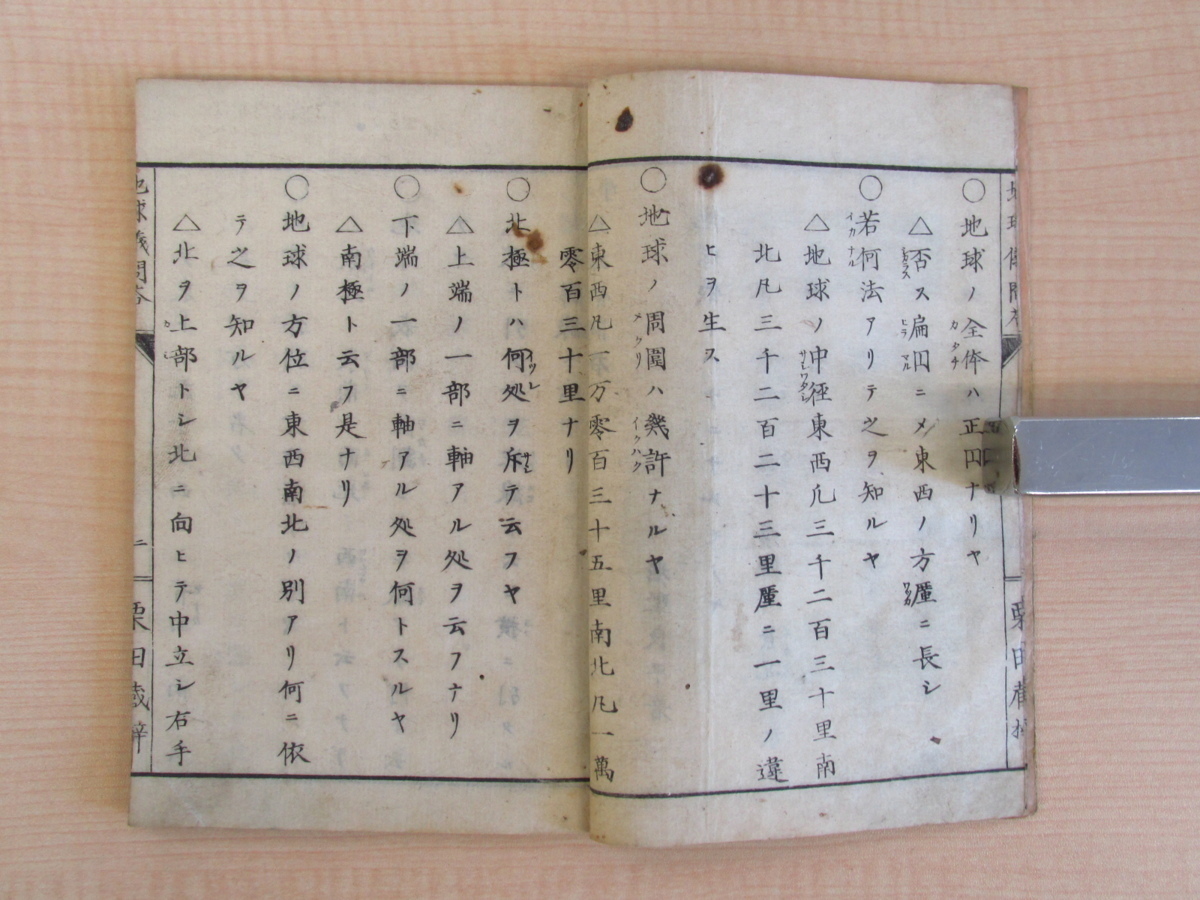 ○地球ノ全体ハ正円ナリヤ
△否ス扁円ニメ東西ノ方厘ニ長シ
○若何法アリテ之ヲ知ルヤ
△地球ノ中径東西凡三千二百三十里南
北凡三千二百二十三里厘ニ一里ノ違
ヒヲ生ス
○地球ノ周囲ハ幾許ナルヤ
△東西凡一万零百三十五里南北凡一萬
零百三十里ナリ
○北極トハ何処ヲ斥テ云フヤ
△上端ノ一部ニ軸アル処ヲ云フナリ
○下端ノ一部ニ軸アル処ヲ何トスルヤ
△南極ト云フ是ナリ
○地球ノ方位ニ東西南北ノ別アリ何ニ依
テ之ヲ知ルヤ
△北ヲ上部トシ北ニ向ヒテ中立シ右手
地球儀問答
二
栗田蔵梓